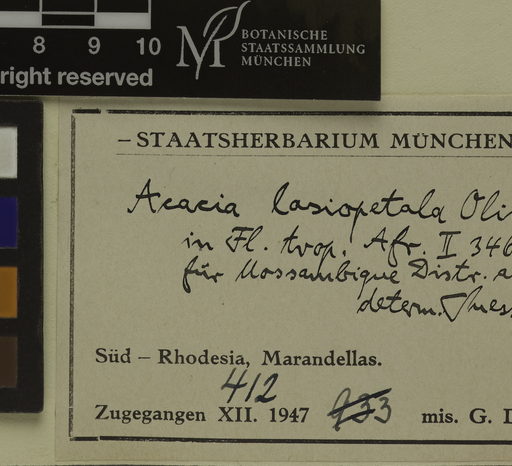 8 9 10
right reserved
M BOTANISCHE
STAATSSAMMLUNG
MÜNCHEN
– STAATSHERBARIUM MÜNCHEN
Acacia lasiopetala Oli
in Fl. trop. Afr. II 346
für Mossambique Distr. a
determ.
Süd – Rhodesia, Marandellas.
412
Zugegangen XII. 1947 933 mis. G. D